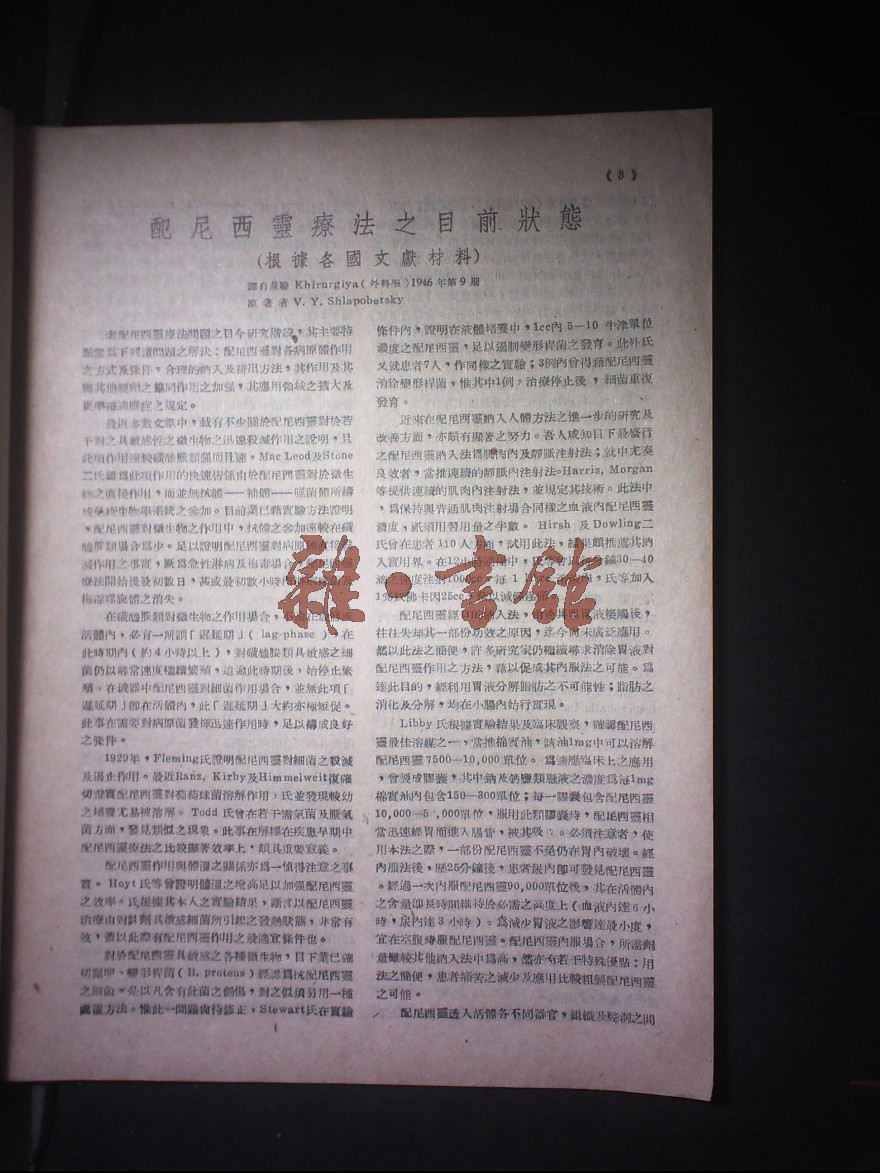 (8)
配尼西靈療法之目前狀態
(根據各國文獻材料)
譯自蘇聯 Khirurgiya (外科學) 1946年第9期
原著者 V. Y. Shlapobersky
之方式及條件，合理的納入及排出方法，其作用及其
最近多數文獻中，載有不少關於配尼西靈對於若
干對之具敏感性之微生物之迅速殺滅作用之證明，且
Mac Leod及Stone
二氏認為此項作用的快速皆係由於配尼西靈對於微生
物之直接作用，而並無抗體——補體——噬菌體所構
，配尼西靈對微生物之作用中，抗體之參加遠較在磺
療法開始後最初數日，甚或最初數小時內
梅毒螺旋體之消失。
活體內，必有一所謂「遲延期」( lag-phase )，在
此時期內(約4小時以上)，對磺醯胺類具敏感之細
菌仍以尋常速度繼續繁殖，迨逾此時期後，始停止繁
殖。在玻器中配尼西靈對細菌作用場合，並無此項「
遲延期」卽在活體內，此「遲延期」大約亦極短促。
此事在需要對病原菌發揮迅速作用時，足以構成良好
之條件。
1929年，Fleming氏證明配尼西靈對細菌之殺滅
及遏止作用。最近Ranz, Kirby及Himmelweit復確
切證實配尼西靈對葡萄球菌溶解作用，氏並發現較幼
之培養尤易被溶解。Todd氏曾在若干需氣菌及厭氣
菌方面，發見類似之現象。此事在解釋在疾患早期中
配尼西靈療法之比較顯著效率上，頗具重要意義。
配尼西靈作用與體溫之關係亦為一值得注意之事
實。Hoyt氏等曾證明體溫之增高足以加强配尼西靈
之效率。氏根據其本人之實驗結果，斷言以配尼西靈
治療由對該劑具敏感細菌所引起之發熱狀態，非常有
效，蓋以此際有配尼西靈作用之最適宜條件也。
對於配尼西靈具敏感之各種微生物，目下業已確
切闡明。變形桿菌(B. proteus)經認為抗配尼西靈
之細菌。是以凡含有此菌之創傷，對之似須另用一種
處置方法。惟此一問題尙待修正，Stewart氏在實驗
條件內，證明在液體培養中，1cc內5—10牛津單位
濃度之配尼西靈，足以遏制變形桿菌之發育。此外氏
又就患者7人，作同樣之實驗；3例內曾得藉配尼西靈
消除變形桿菌，惟其中1例，治療停止後，細菌重復
發育。
近來在配尼西靈納入人體方法之進一步的研究及
改善方面，亦頗有顯著之努力。吾人咸知目下最盛行
之配尼西靈納入法為肌肉內及靜脈注射法；就中尤奏
良效者，當推連續的靜脈內注射法。Harris, Morgan
等提供連續的肌肉內注射法，並規定其技術。此法中
，為保持與普通肌肉注射場合同樣之血液內配尼西靈
濃度，祇須用習用量之半數。Hirsh 及Dowling二
氏曾在患者110人方面，試用此法，結果頗推薦其納
配尼西靈經口的納入法，
往往失却其一部份功效之原因，迄今尚未廣泛應用。
然以此法之簡便，許多研究家仍繼續尋求消除胃液對
配尼西靈作用之方法，藉以促成其內服法之可能。為
達此目的，經利用胃液分解脂肪之不可能性；脂肪之
消化及分解，均在小腸內始行實現。
Libby氏根據實驗結果及臨床觀察，確認配尼西
靈最佳溶媒之一，當推棉實油，該油1mg中可以溶解
配尼西靈7500—10,000單位。為適應臨床上之應用
，會製成膠囊，其中鈉及鈣鹽類懸液之濃度為每1mg
棉實油內包含150—300單位；每一膠囊包含配尼西靈
當迅速經胃而進入腸管，被其吸收。必須注意者，使
用本法之際，一部份配尼西靈不免仍在胃內破壞。經
內服法後，歷25分鐘後，患者尿內卽可發見配尼西靈
。經過一次內服配尼西靈90,000單位後，其在活體內
之含量卽長時間維持於必需之高度上(血液內達6小
時，尿內達3小時)。為減少胃液之影響達最小度，
宜在空腹時服配尼西靈。配尼西靈內服場合，所需劑
量雖較其他納入法中為高，然亦有若干特殊優點：用
法之簡便，患者痛苦之減少及應用比較粗製配尼西靈
之可能。
配尼西靈透入活體各不同器官，組織及腔洞之問
雜·書館